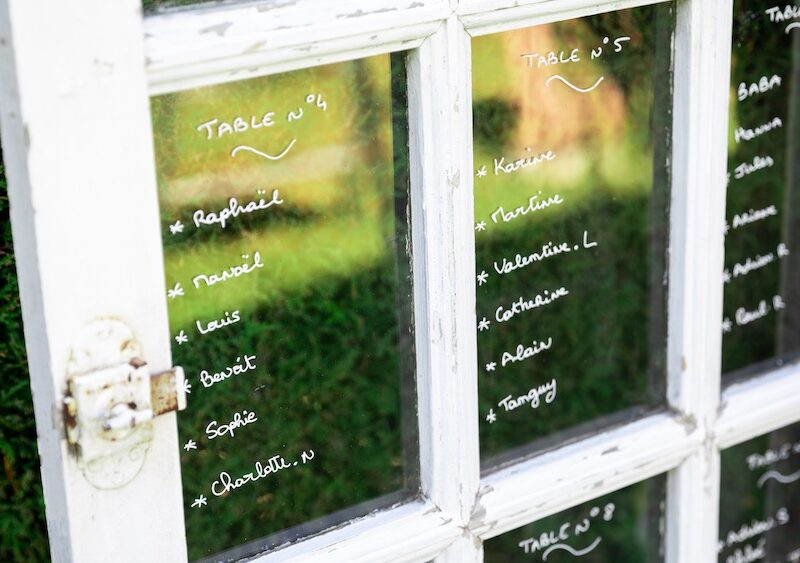 TABLE N°4
* Raphaël
* Manoël
* Louis
* Benoît
* Sophie
* Charlotte.N
TABLE N°5
* Karine
* Martine
* Valentine.L
* Catherine
* Alain
* Tanguy
BABA
Hanna
* Jules
* Ariane
* Adrien R
* Paul R
TABLE N°8
TABLE